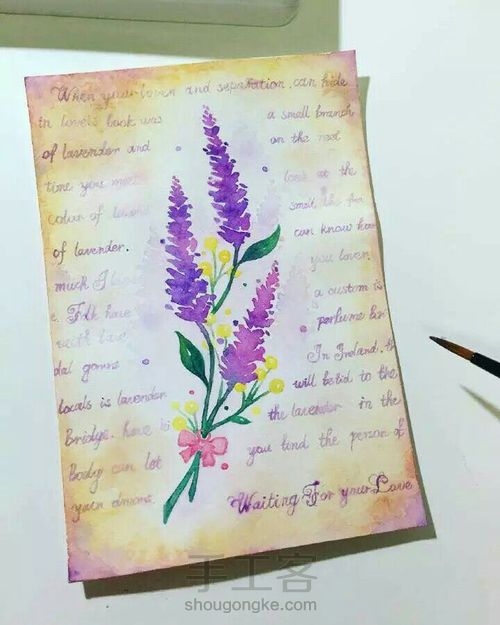 When your lover and separation, can hide
in love's book was a small branch
of lavender and on the root
time you meet look at the
colour of smell, the
of lavender. can know how
much I you lover
Folk have a custom is
with perfume
dal gowns In Ireland, th
locals is lavender will be tid to the
Bridge. have is the lavender in the
Body can let you find the person of
your dreams.
Waiting For your Love
手工客
shougongke.com